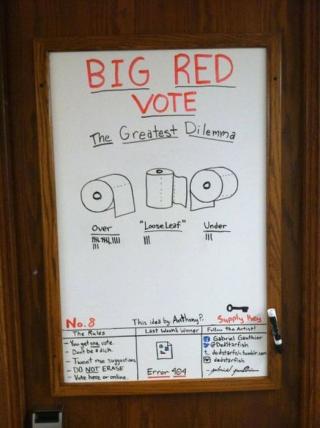 BIG RED
VOTE
The Greatest Dilemma
Over "Loose Leaf" Under
No. 8 This idea by Anthony P. Supply Key
The Rules Last Week's Winner Follow the Artist!
- You get one vote.
- Don't be a dick.
- Tweet me suggestions
- DO NOT ERASE
- Vote here or online.
Error 404
Gabriel Gauthier
@DedStarfish
dedstarfish.tumblr.com
dedstarfish